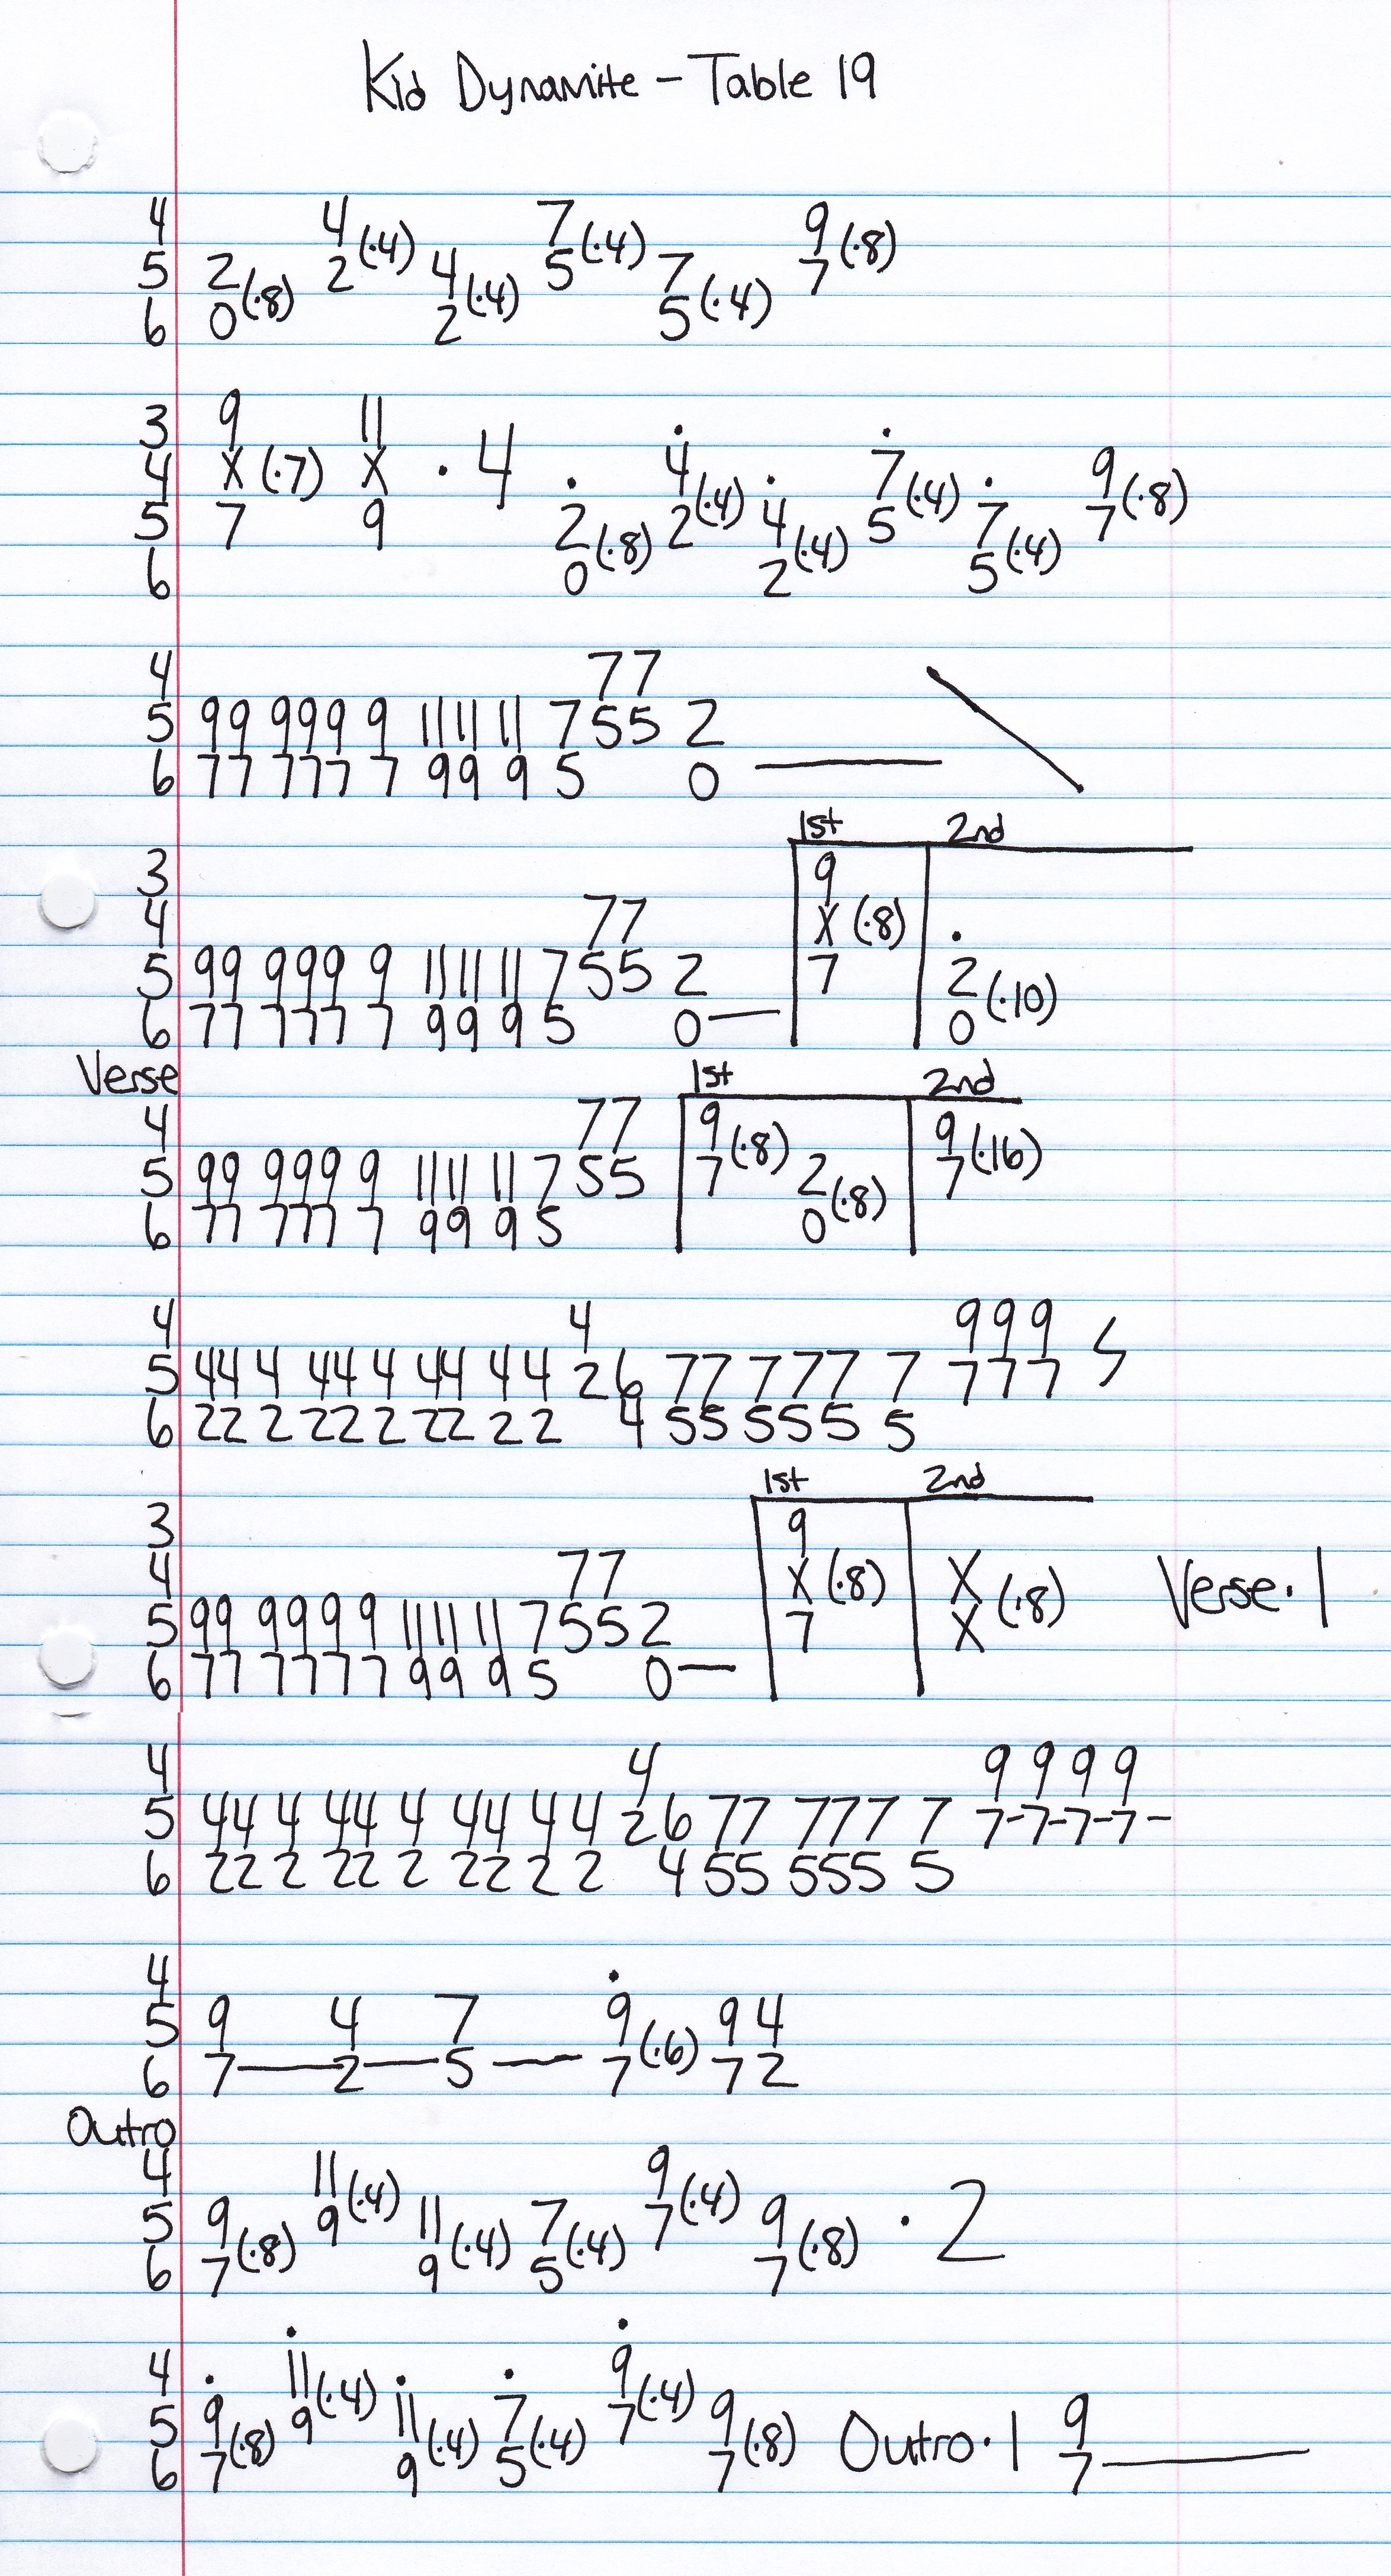 Kid Dynamite - Table 19
4 4(·4) 7(·4) 9(·8)
5 2(·8) 2 4(·4) 5 7(·4) 7
6 0 2 5
3 9 11
4 X(·7) X ·4 · 4(·4) · 7(·4) · 9(·8)
5 7 9 2(·8) 2 4(·4) 5 7(·4) 7
6 0 2 5
4 77
5 99 999 9 11 11 11 7 55 2
6 77 777 7 99 9 5 0
1st 2nd
3 9
4 77 X(·8) ·
5 99 999 9 11 11 11 7 55 2 7 2(·10)
6 77 777 7 99 9 5 0 0
Verse 1st 2nd
4 77 9(·8) 9(·16)
5 99 999 9 11 11 11 7 55 7 2(·8) 7
6 77 777 7 99 9 5 0
4 4 9 9 9
5 44 4 44 4 44 4 4 2 6 77 7 77 7 7 7 7
6 22 2 22 2 22 2 2 4 55 5 5 5 5
1st 2nd
3 9
4 77 X(·8) X(·8) Verse·1
5 99 99 9 9 11 11 11 7 55 2 7 X
6 77 77 7 7 99 9 5 0
4 4 9 9 9 9
5 44 4 44 4 44 4 4 2 6 77 777 7 7-7-7-7-
6 22 2 22 2 22 2 2 4 55 555 5
4 ·
5 9 4 7 9(·6) 9 4
6 7 2 5 7 7 2
Outro
4 11(·4) 9(·4)
5 9(·8) 9 11(·4) 7(·4) 7 9(·8) ·2
6 7 9 5 7
4 · 11(·4) · · 9(·4)
5 9(·8) 9 11(·4) 7(·4) 7 9(·8) Outro·1 9
6 7 9 5 7 7